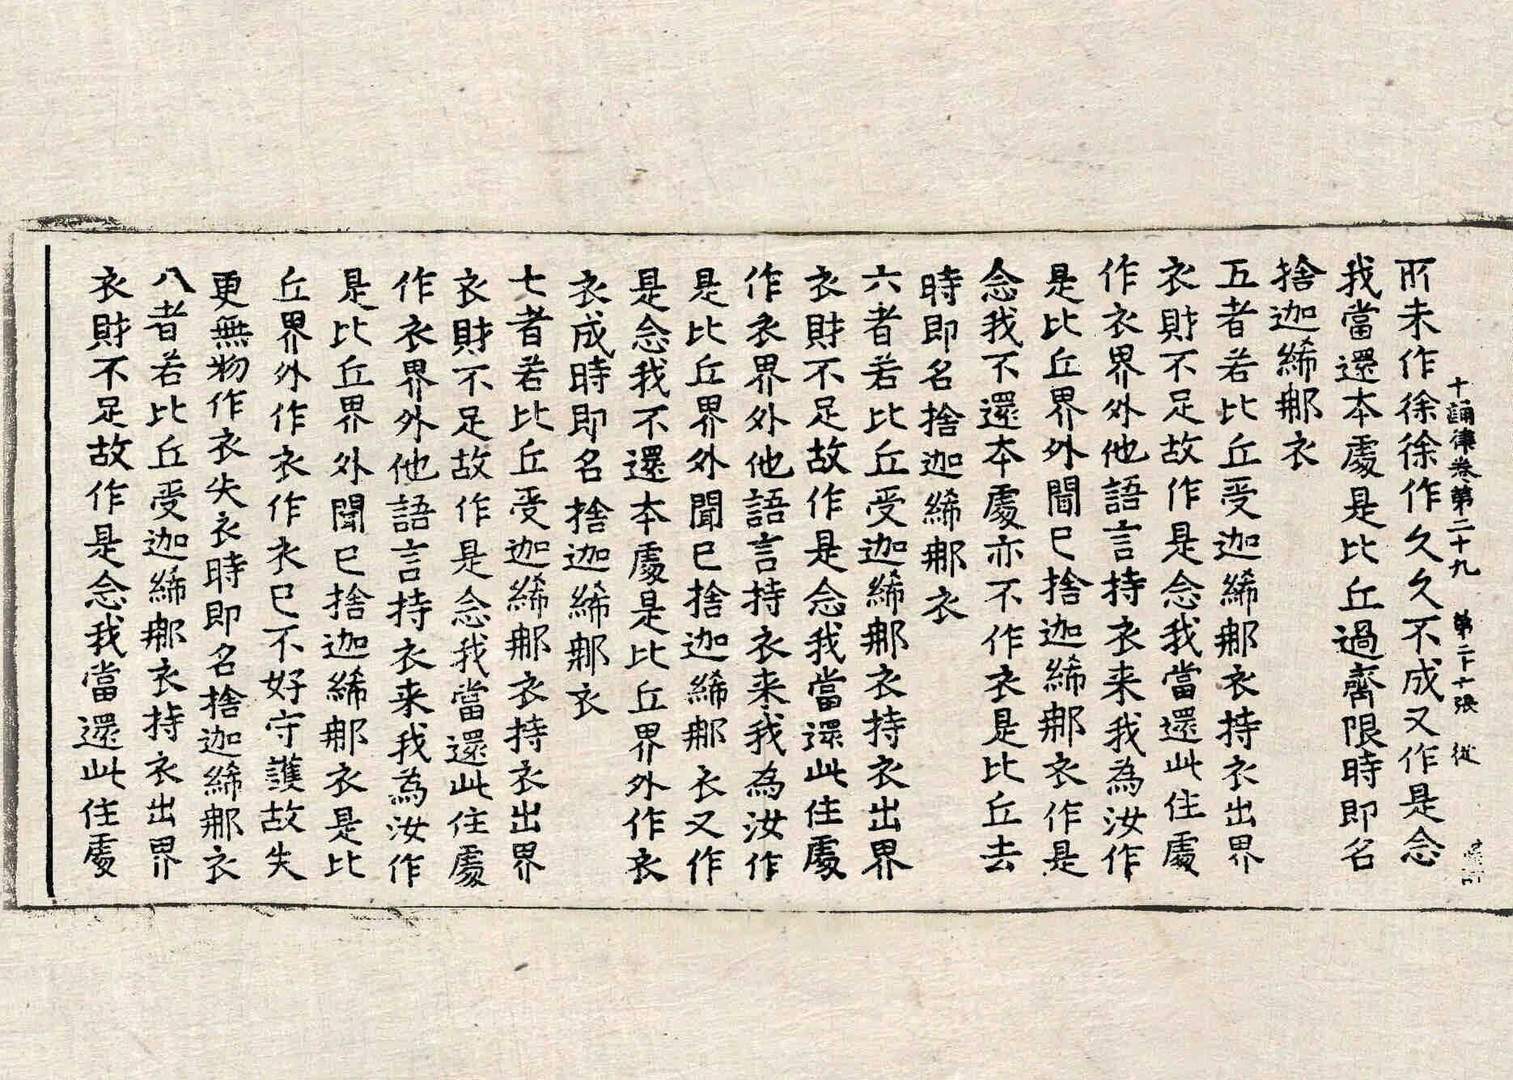 十誦律卷第二十九 第二十張 從
所未作徐徐作久久不成又作是念
我當還本處是比丘過齊限時即名
捨迦絺那衣
五者若比丘受迦絺那衣持衣出界
衣財不足故作是念我當還此住處
作衣界外他語言持衣来我為汝作
是比丘界外聞已捨迦絺那衣作是
念我不還本處亦不作衣是比丘去
時即名捨迦絺那衣
六者若比丘受迦絺那衣持衣出界
衣財不足故作是念我當還此住處
作衣界外他語言持衣来我為汝作
是比丘界外聞已捨迦絺那衣又作
是念我不還本處是比丘界外作衣
衣成時即名捨迦絺那衣
七者若比丘受迦絺那衣持衣出界
衣財不足故作是念我當還此住處
作衣界外他語言持衣来我為汝作
是比丘界外聞已捨迦絺那衣是比
丘界外作衣作衣已不好守護故失
更無物作衣失衣時即名捨迦絺那衣
八者若比丘受迦絺那衣持衣出界
衣財不足故作是念我當還此住處